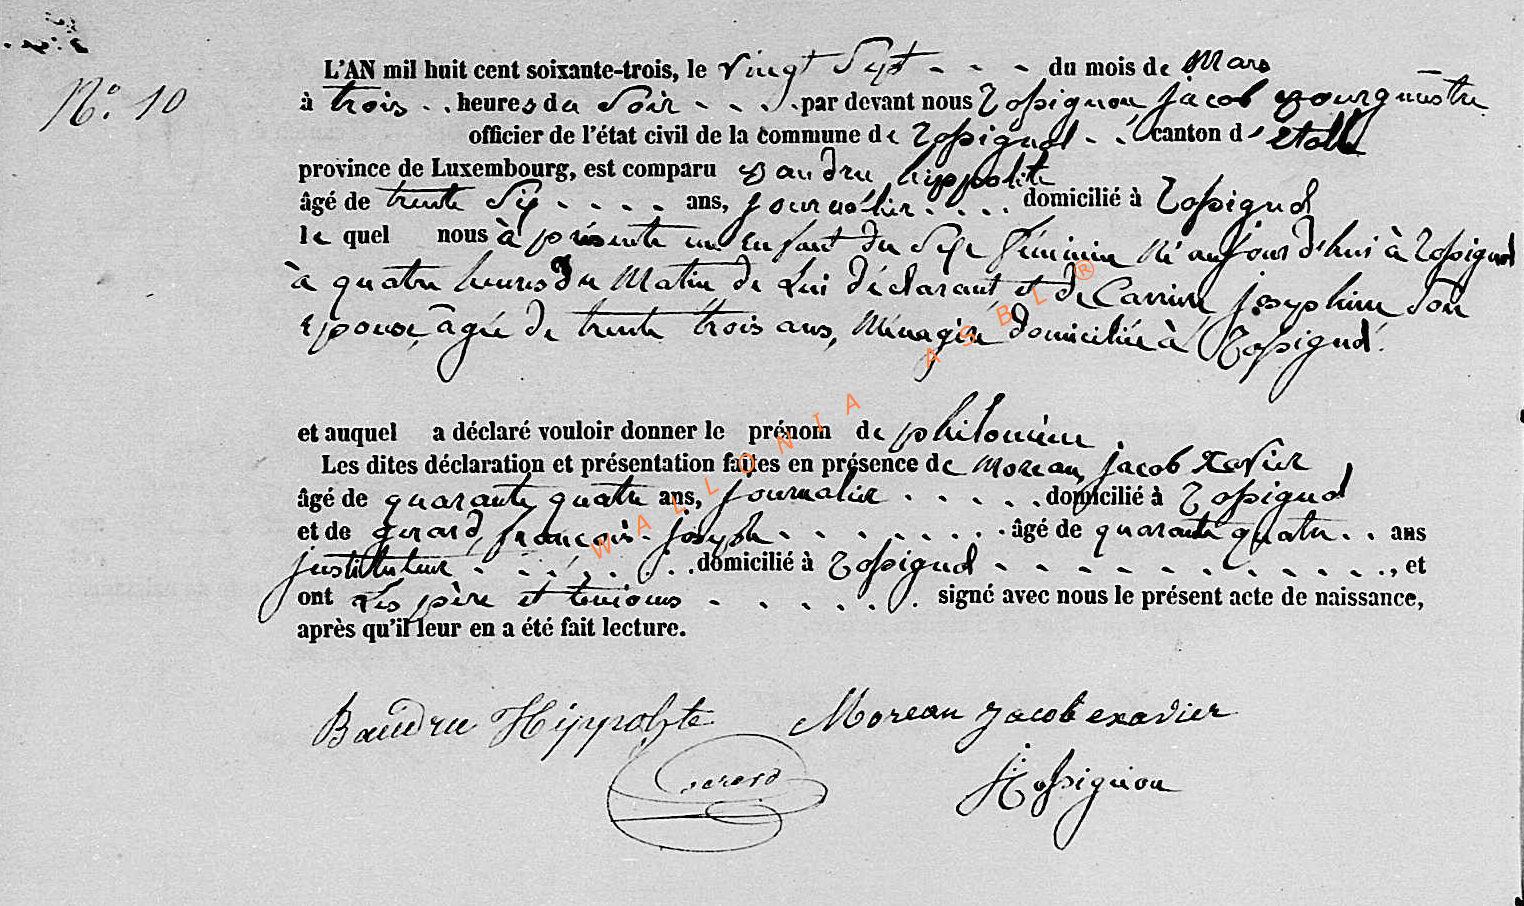 N.° 10
L'AN mil huit cent soixante-trois, le vingt Sept - - - du mois de Mars
à trois . . heures du Soir - - - . par devant nous Rossignon Jacob Bourgmestre
officier de l'état civil de la commune de Rossignol - - canton d'étalle
province de Luxembourg, est comparu Baudru hippolite
âgé de trente Six - - - - ans, journalier - - - - domicilié à Rossignol
le quel nous à présenté un Enfant du Sexe féminin Né aujourd'hui à Rossignol
à quatre heures du Matin de Lui déclarant et de Josephine Son
Epouse, âgée de trente trois ans, Ménagère domiciliée à Rossignol.
et auquel a déclaré vouloir donner le prénom de philomène
Les dites déclaration et présentation faites en présence de Moreau, jacob Xavier
âgé de quarante quatre ans, journalier . . . . . domicilié à Rossignol
et de gerard, françois-joseph - - - - - - - . âgé de quarante quatre . . ans
justituteur - - - - - - . domicilié à Rossignol - - - - - - - - - - - ., et
ont Les père et temoins - - - - - - . signé avec nous le présent acte de naissance,
après qu'il leur en a été fait lecture.
Baudru Hippolyte Moreau jacob exavier
Gerard Rossignon
WALLONIA ASBL®